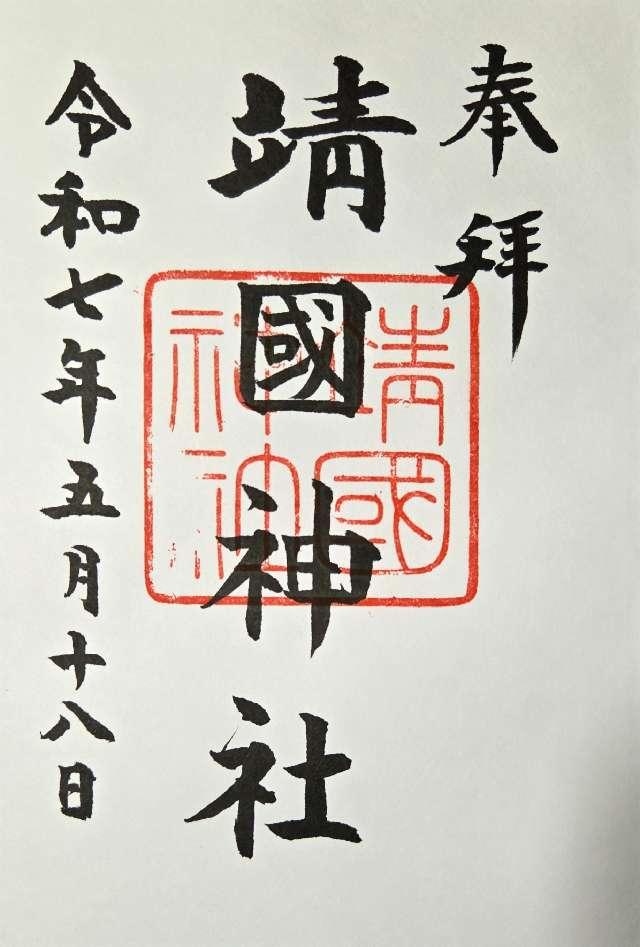 奉拝
靖國神社
令和七年五月十八日
靖國
神社